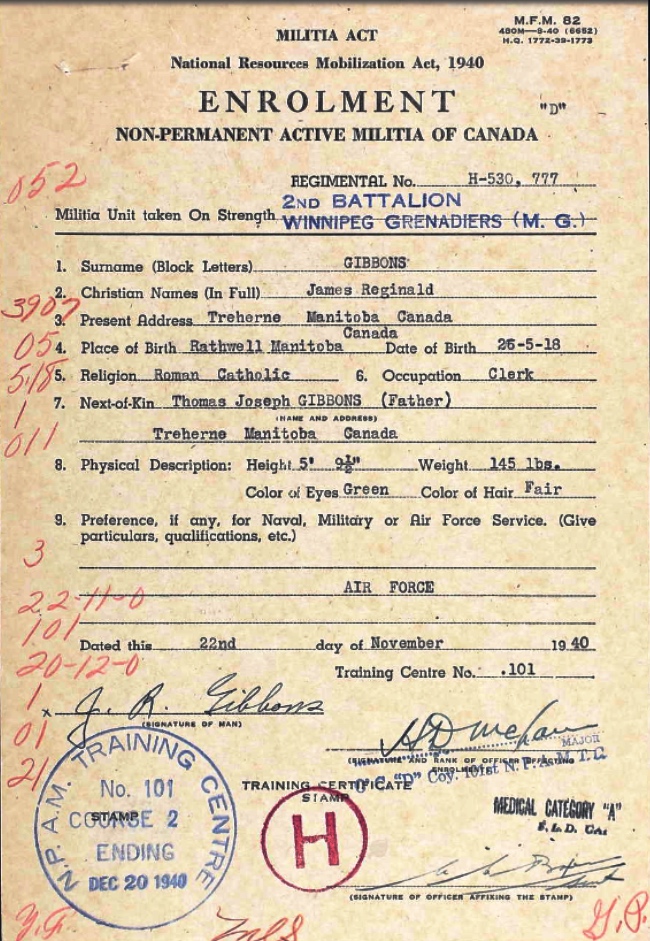 M.F.M. 82
MILITIA ACT
480M—9-40 (6652)
H.Q. 1772-39-1773
National Resources Mobilization Act, 1940
ENROLMENT "D"
NON-PERMANENT ACTIVE MILITIA OF CANADA
052
REGIMENTAL No. H-530, 777
Militia Unit taken On Strength 2ND BATTALION
WINNIPEG GRENADIERS (M. G.)
1. Surname (Block Letters) GIBBONS
2. Christian Names (In Full) James Reginald
3907
3. Present Address Treherne Manitoba Canada
Canada
05
4. Place of Birth Rathwell Manitoba Date of Birth 26-5-18
518
5. Religion Roman Catholic 6. Occupation Clerk
1
7. Next-of-Kin Thomas Joseph GIBBONS (Father)
(NAME AND ADDRESS)
011
Treherne Manitoba Canada
8. Physical Description: Height 5' 9½" Weight 145 lbs.
Color of Eyes Green Color of Hair Fair
9. Preference, if any, for Naval, Military or Air Force Service. (Give
particulars, qualifications, etc.)
3
AIR FORCE
22-11-0
101
Dated this 22nd day of November 1940
20-12-0
Training Centre No. .101
1
x J. R. Gibbons
(SIGNATURE OF MAN)
01
MAJOR
(SIGNATURE AND RANK OF OFFICER EFFECTING
ENROLMENT)
O C. "D" Coy. 101st N. P. A. M. T. C.
21
TRAINING CERTIFICATE
STAMP
N.P.A.M. TRAINING CENTRE
No. 101
COURSE 2
STAMP
ENDING
DEC 20 1940
H
MEDICAL CATEGORY "A"
(SIGNATURE OF OFFICER AFFIXING THE STAMP)